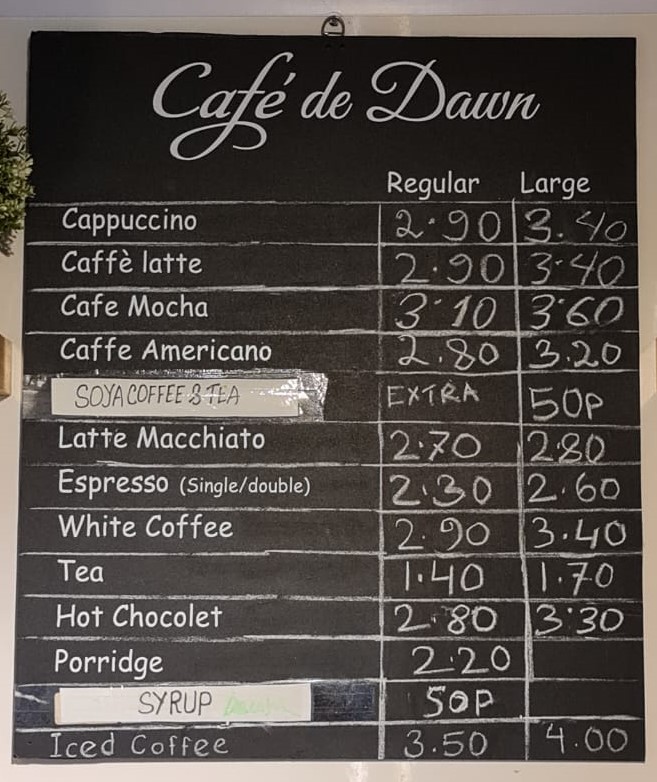 Café de Dawn
Regular Large
Cappuccino 2.90 3.40
Caffè latte 2.90 3.40
Cafe Mocha 3.10 3.60
Caffe Americano 2.80 3.20
SOYA COFFEE & TEA EXTRA 50P
Latte Macchiato 2.70 2.80
Espresso (Single/double) 2.30 2.60
White Coffee 2.90 3.40
Tea 1.40 1.70
Hot Chocolet 2.80 3.30
Porridge 2.20
SYRUP 50P
Iced Coffee 3.50 4.00